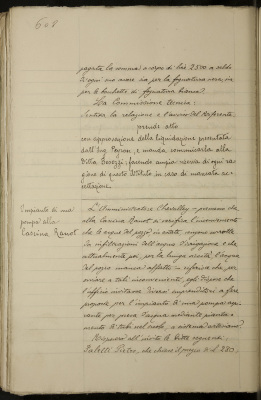 608
pagata la somma a corpo di lire 2500 a saldo
d'ogni suo avere sia per la fognatura nera sia
per le bocchette di fognatura bianca.
La Commissione tecnica:
Sentita la relazione e l'avviso del Referente
prende atto
con approvazione della liquidazione presentata
dall'Ing. e manda comunicarla alla
Ditta facendo ampia riserva di ogni ra-
gione di questo Istituto in caso di mancata ac-
cettazione.
Impianto di una
pompa alla
Cascina Ranot
L'Amministratore premesso che
alla Cascina Ranot si verifica l'inconveniente
che le acque del pozzo in estate, vengono corrotte
da infiltrazioni dell'acqua d'irrigazione e che
attualmente poi per la lunga siccità l'acqua
del pozzo manca affatto, e riferisce che per
ovviare a tali inconvenienti, egli dispose che
l'ufficio invitasse diversi imprenditori a fare
proposte per l'impianto di una pompa aspi-
rante per presa d'acqua mediante pianta-
mento di tubi nel suolo, a sistema artesiano.
Risposero all'invito le Ditte seguenti:
Faletti Pietro, che chiese il prezzo di L. 280,